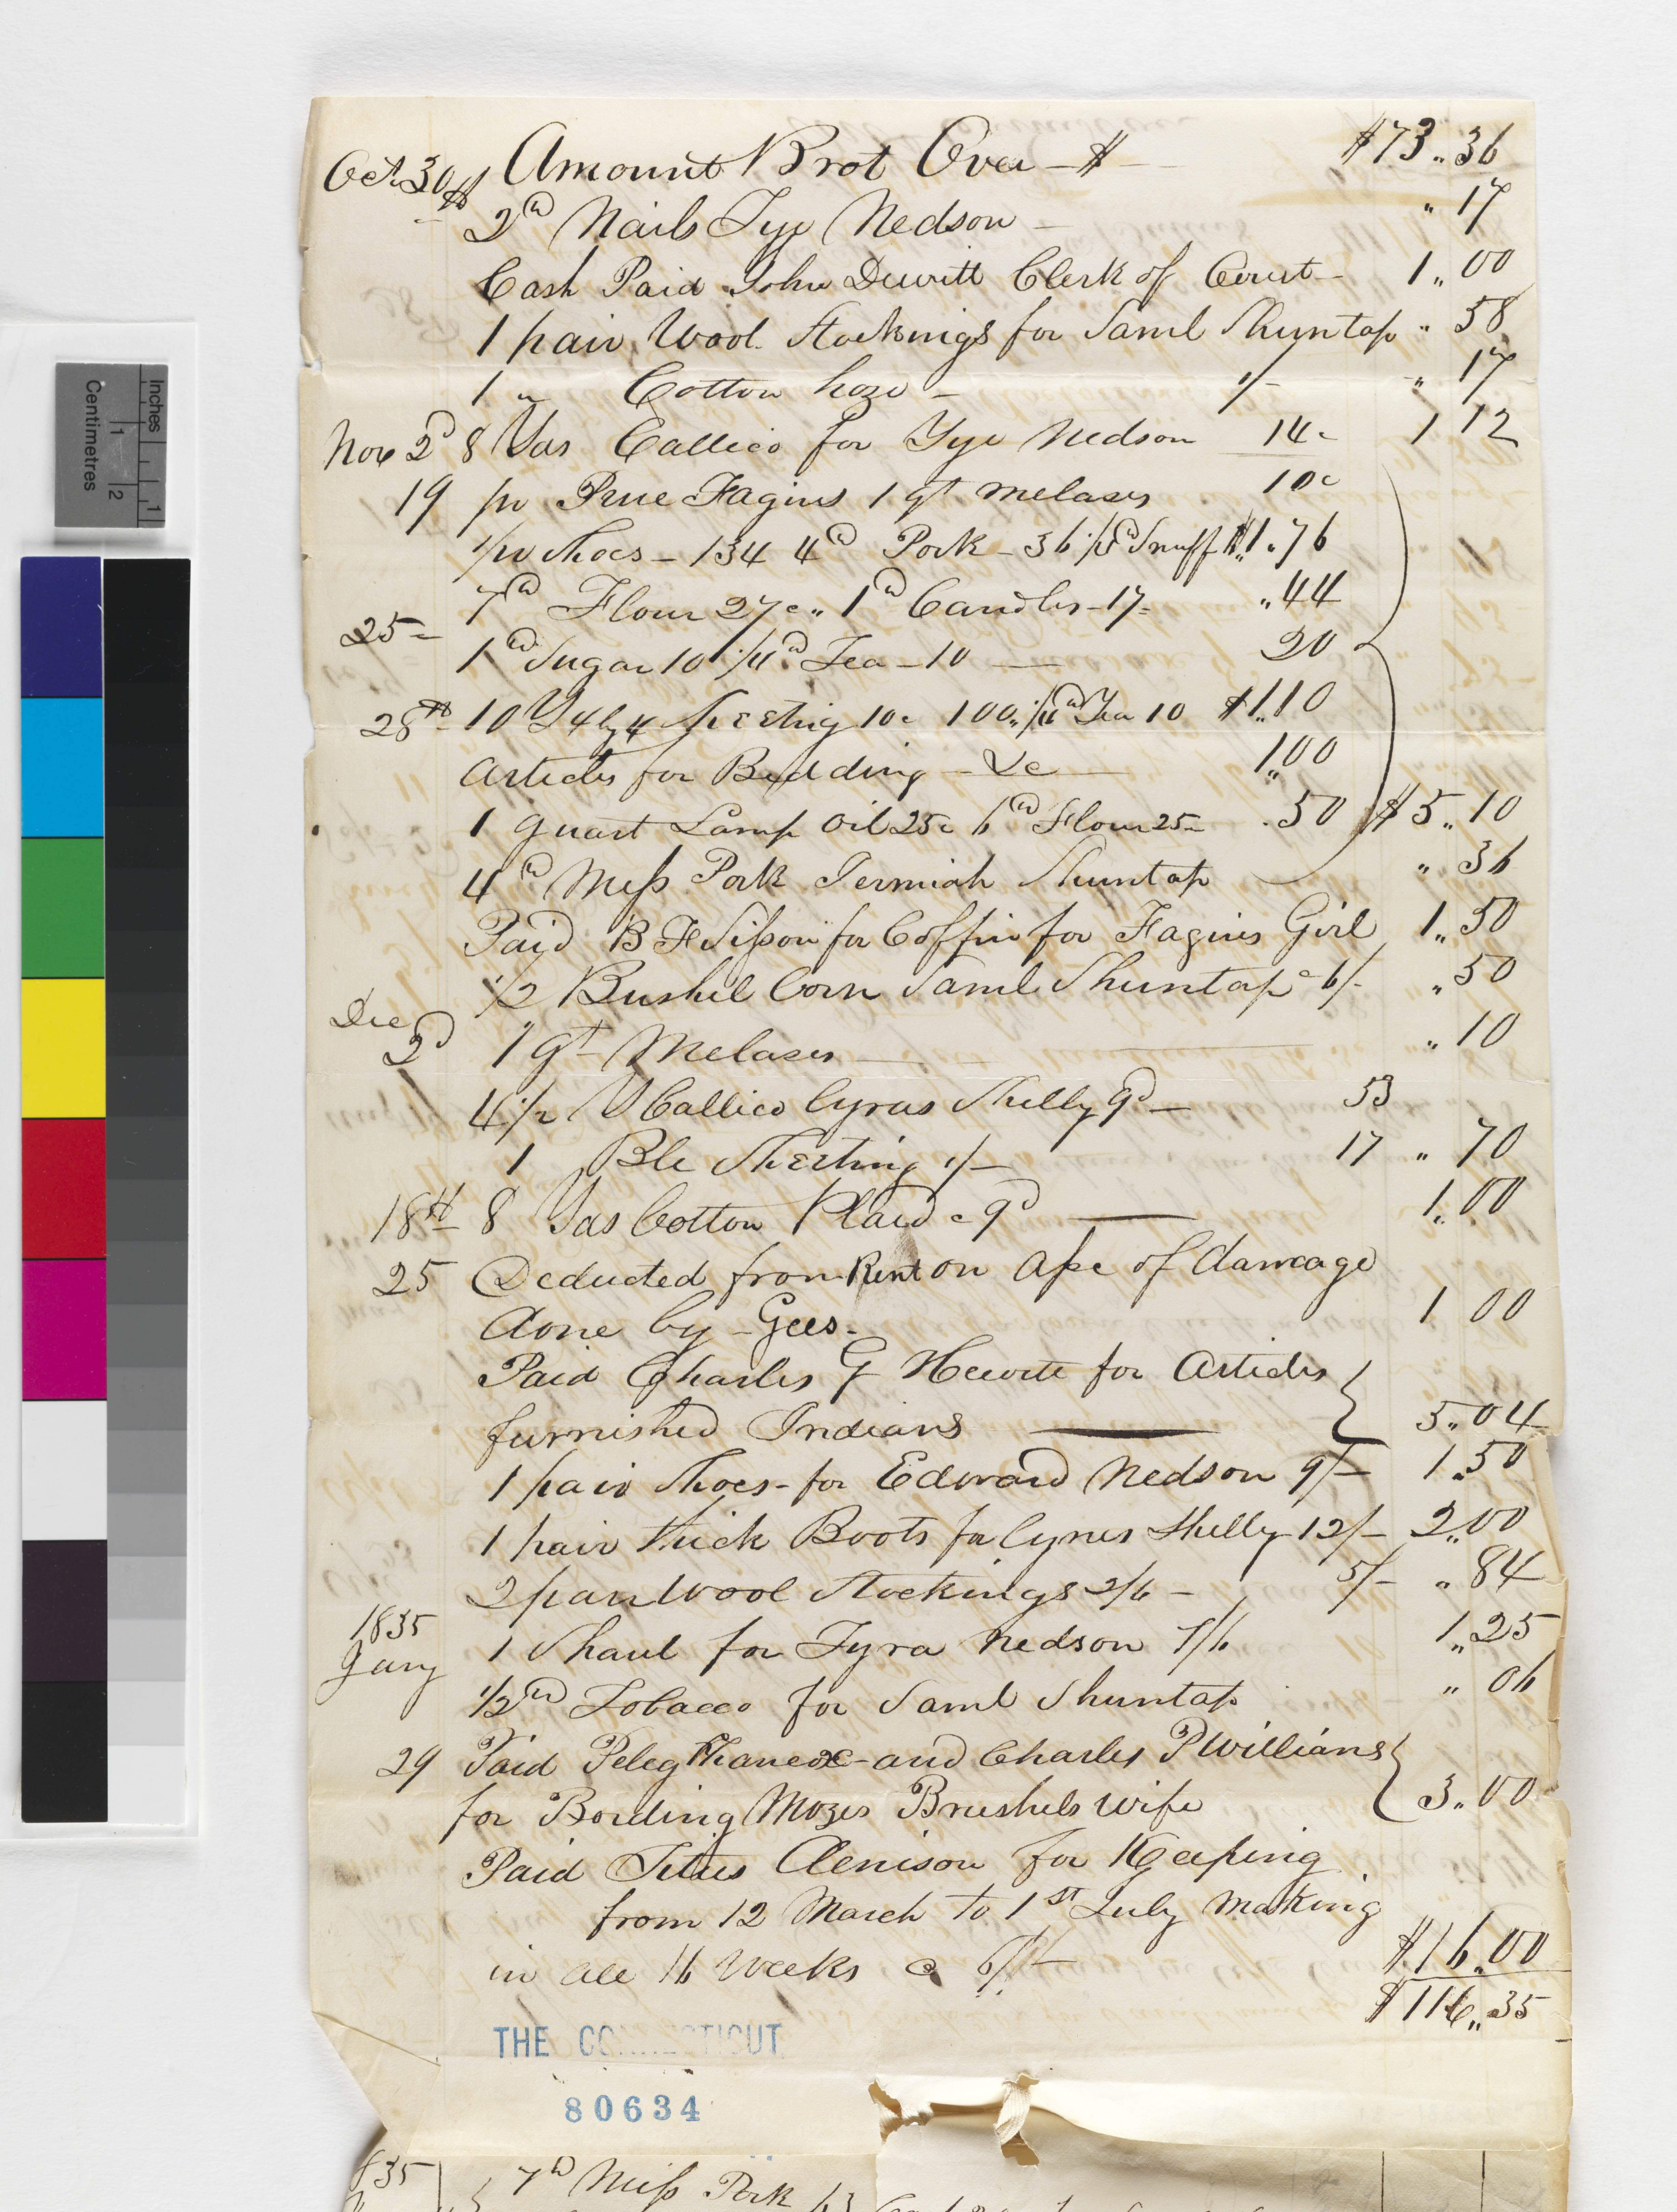 Oct 30th Amount Brot Over - $ $73.. 36
2lb Nails Tye Nedson - .. 17
Cash Paid John Dewitt Clerk of Court - 1.. 00
1 pair Wool Stockings for Saml Shuntap .. 58
1 " Cotton hose - 1/- .. 17
Nov 2d 8 Yds Callico for Tye Nedson 14c 1 12
19 pr Prue Fagins 1 qt Melases 10c
1 pr Shoes - 134 4lb Pork - 36 1/4lb Snuff $1.76
7lb Flour 27c .. 1lb Candles - 17 - .. 44
25 - 1lb Sugar 10 1/4lb Tea - 10 — 20
28th 10 Y 4 by 4 Sheeting 10c 100.. 1/4lb Tea 10 $1..10
Articles for Bedding - &c — 1..00
1 quart Lamp Oil 25c 6lb Flour 25 - .50 $5.. 10
4lb Mess Pork Jermiah Shuntap .. 36
Paid B F Sisson for Coffin for Fagins Girl 1.. 50
1/2 Bushel Corn Saml Shuntap - 6/- .. 50
Dec
2d 1 qt - Melases — .. 10
4 1/2 Y Callico Cyrus Shelly 9d — 53
1 Ble Sheeting 1/- 17 .. 70
18th 8 Yds Cotton Plaid - 9d — 1.. 00
25 Deducted from Rent on of damage
done by - Gees - 1 00
Paid Charles G Hewitt for Articles
furnished Indians — 5.. 04
1 pair Shoes - for Edward Nedson 9/- 1.. 50
1 pair thick Boots for Cyrus Shelly 12/- 2.. 00
2 pair Wool Stockings 2/6 - 5/- .. 84
1835
Jany 1 Shaul for Tyra Nedson 7/6 1.. 25
1/2lb Tobacco for Saml Shuntap .. 06
29 Paid Peleg and Charles P Williams
for Bording Mozes Brushels Wife 3.. 00
Paid Titus Denison for Keeping
from 12 March to 1st July making
in all 16 Weeks @ 6/- $16.. 00
$116.. 35
THE CONNECTICUT
80634
835 7lb Mess Pork 63